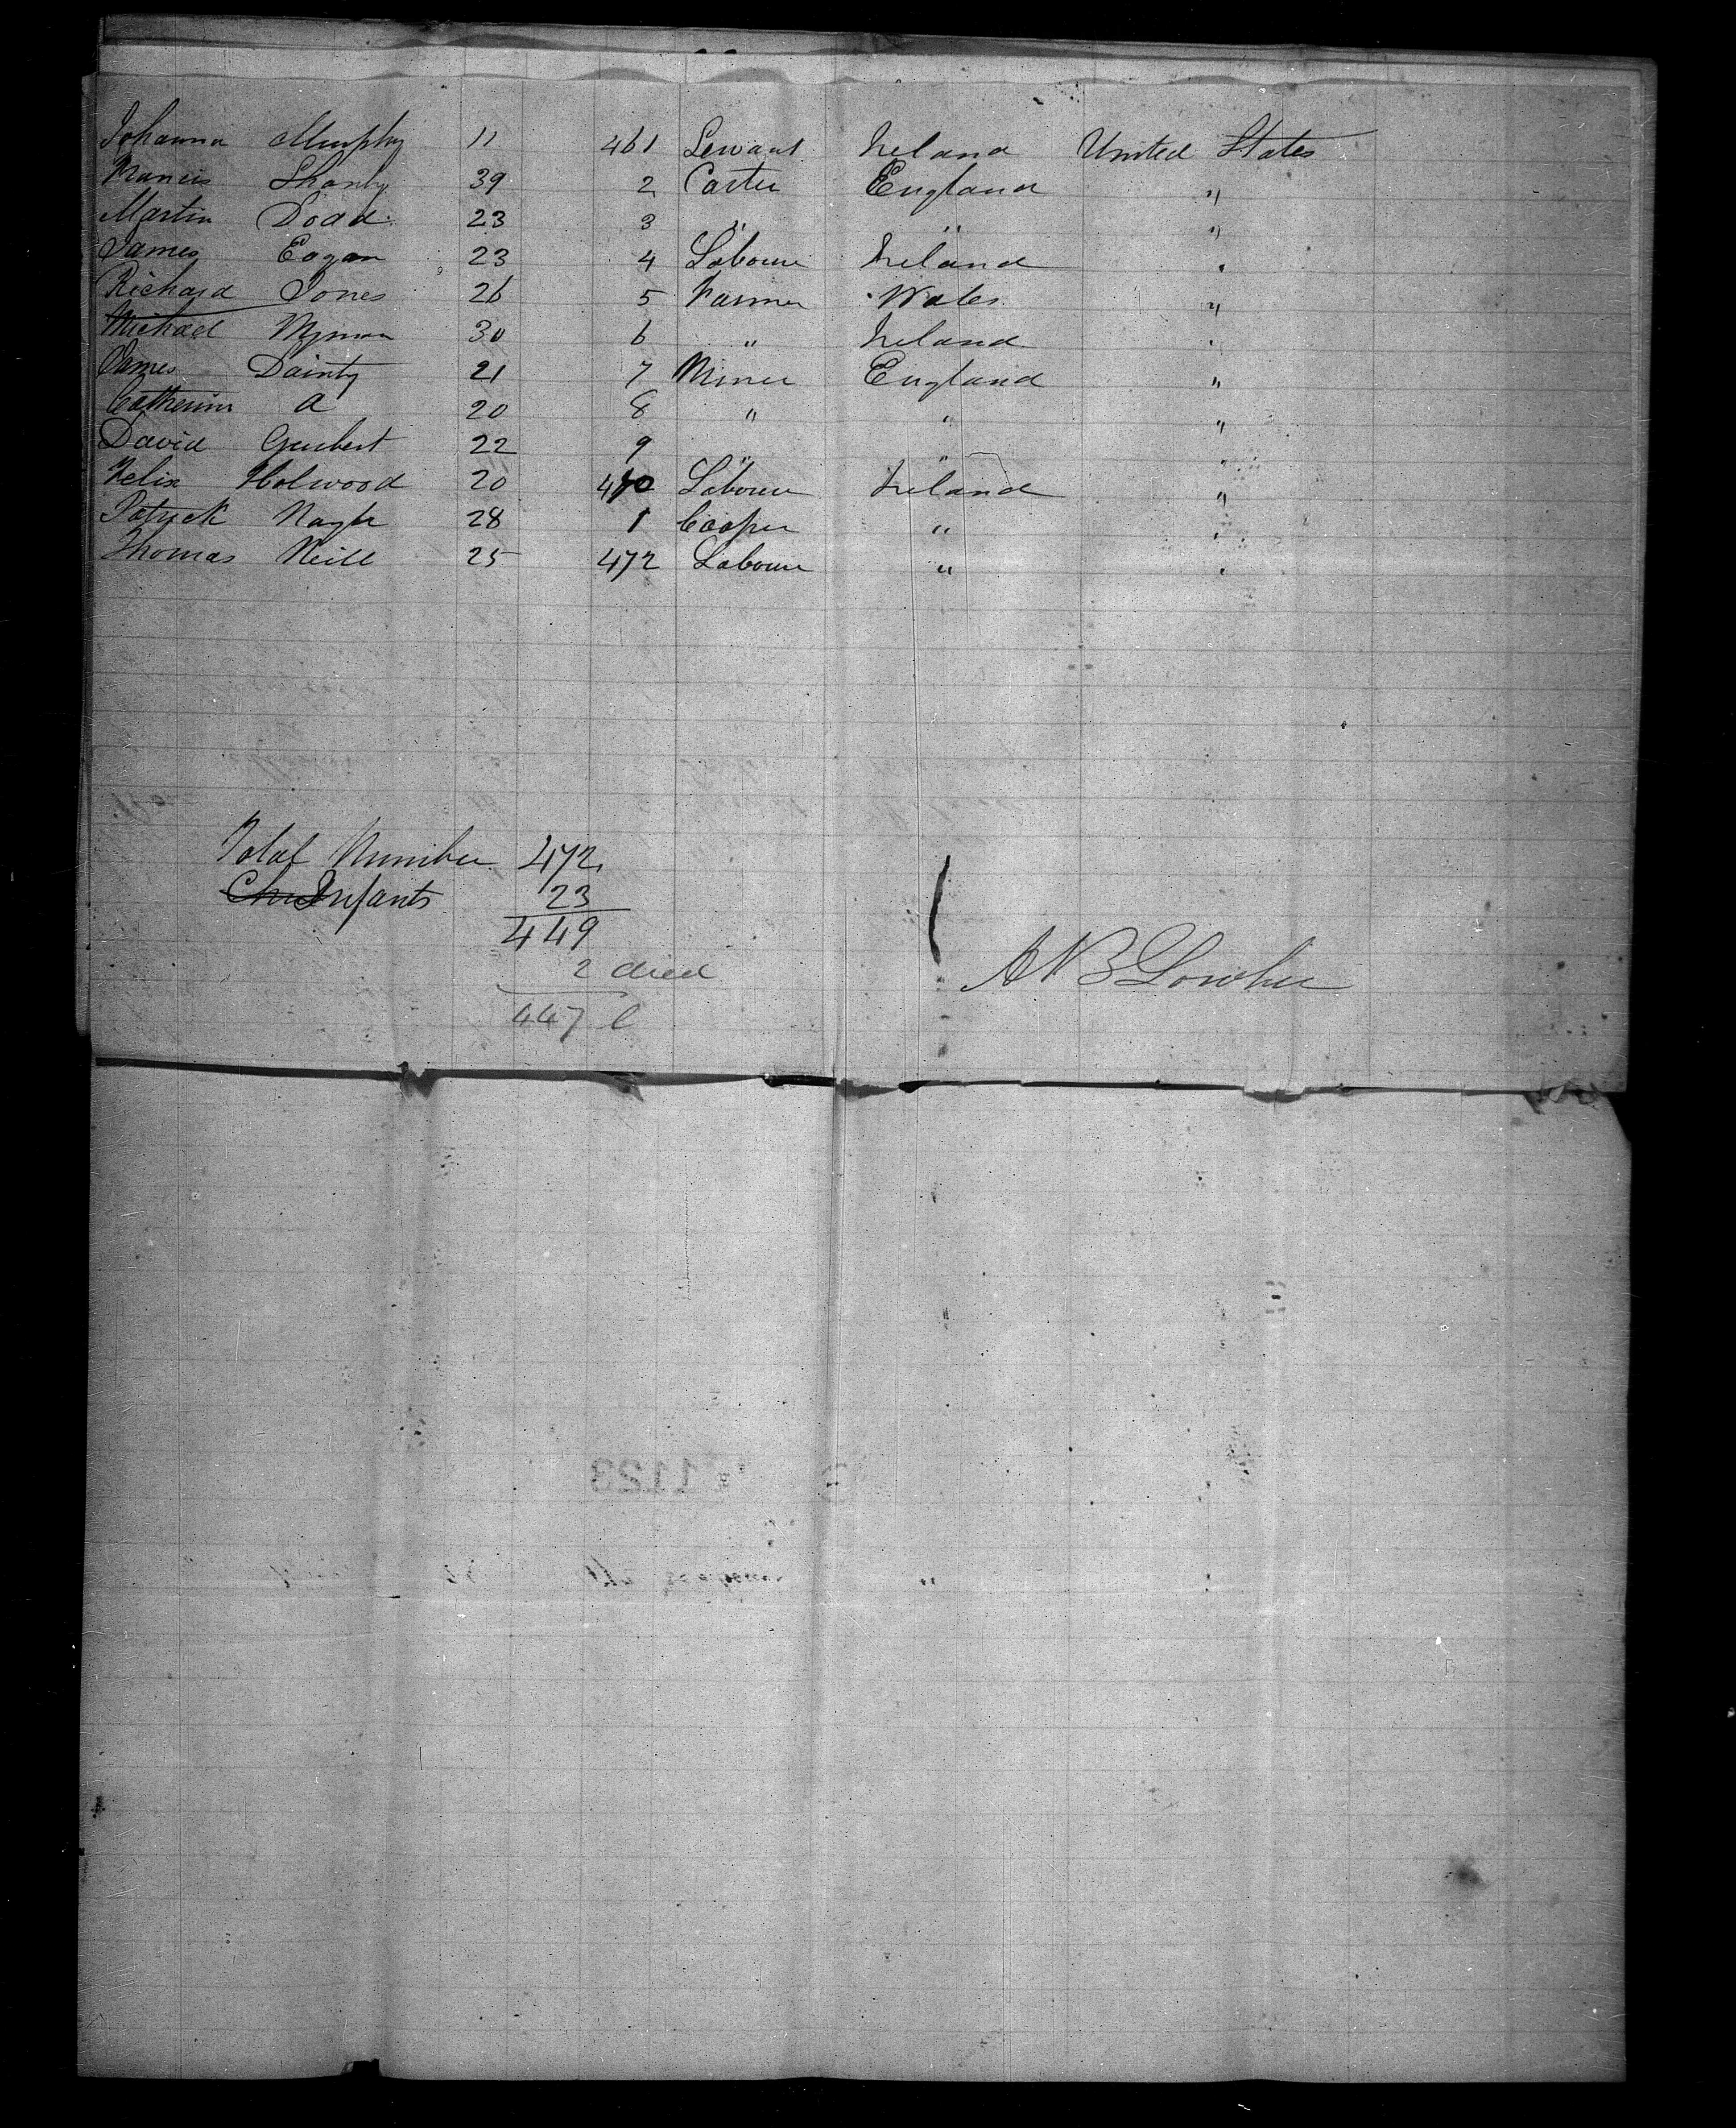 Johanna Murphy 11 461 Servant Ireland United States
Francis Shanly 39 2 Carter England "
Martin Dodd 23 3 " " "
James Eagan 23 4 Labourer Ireland "
Richard Jones 26 5 Farmer Wales "
Michael 30 6 " Ireland "
James Dainty 21 7 Miner England "
Catherine A 20 8 " " "
David 22 9 " " "
Felix Holwood 20 470 Labourer Ireland "
Patrick 28 1 Cooper " "
Thomas Neill 25 472 Labourer " "
Total Number 472
Infants 23
449
2 died
447